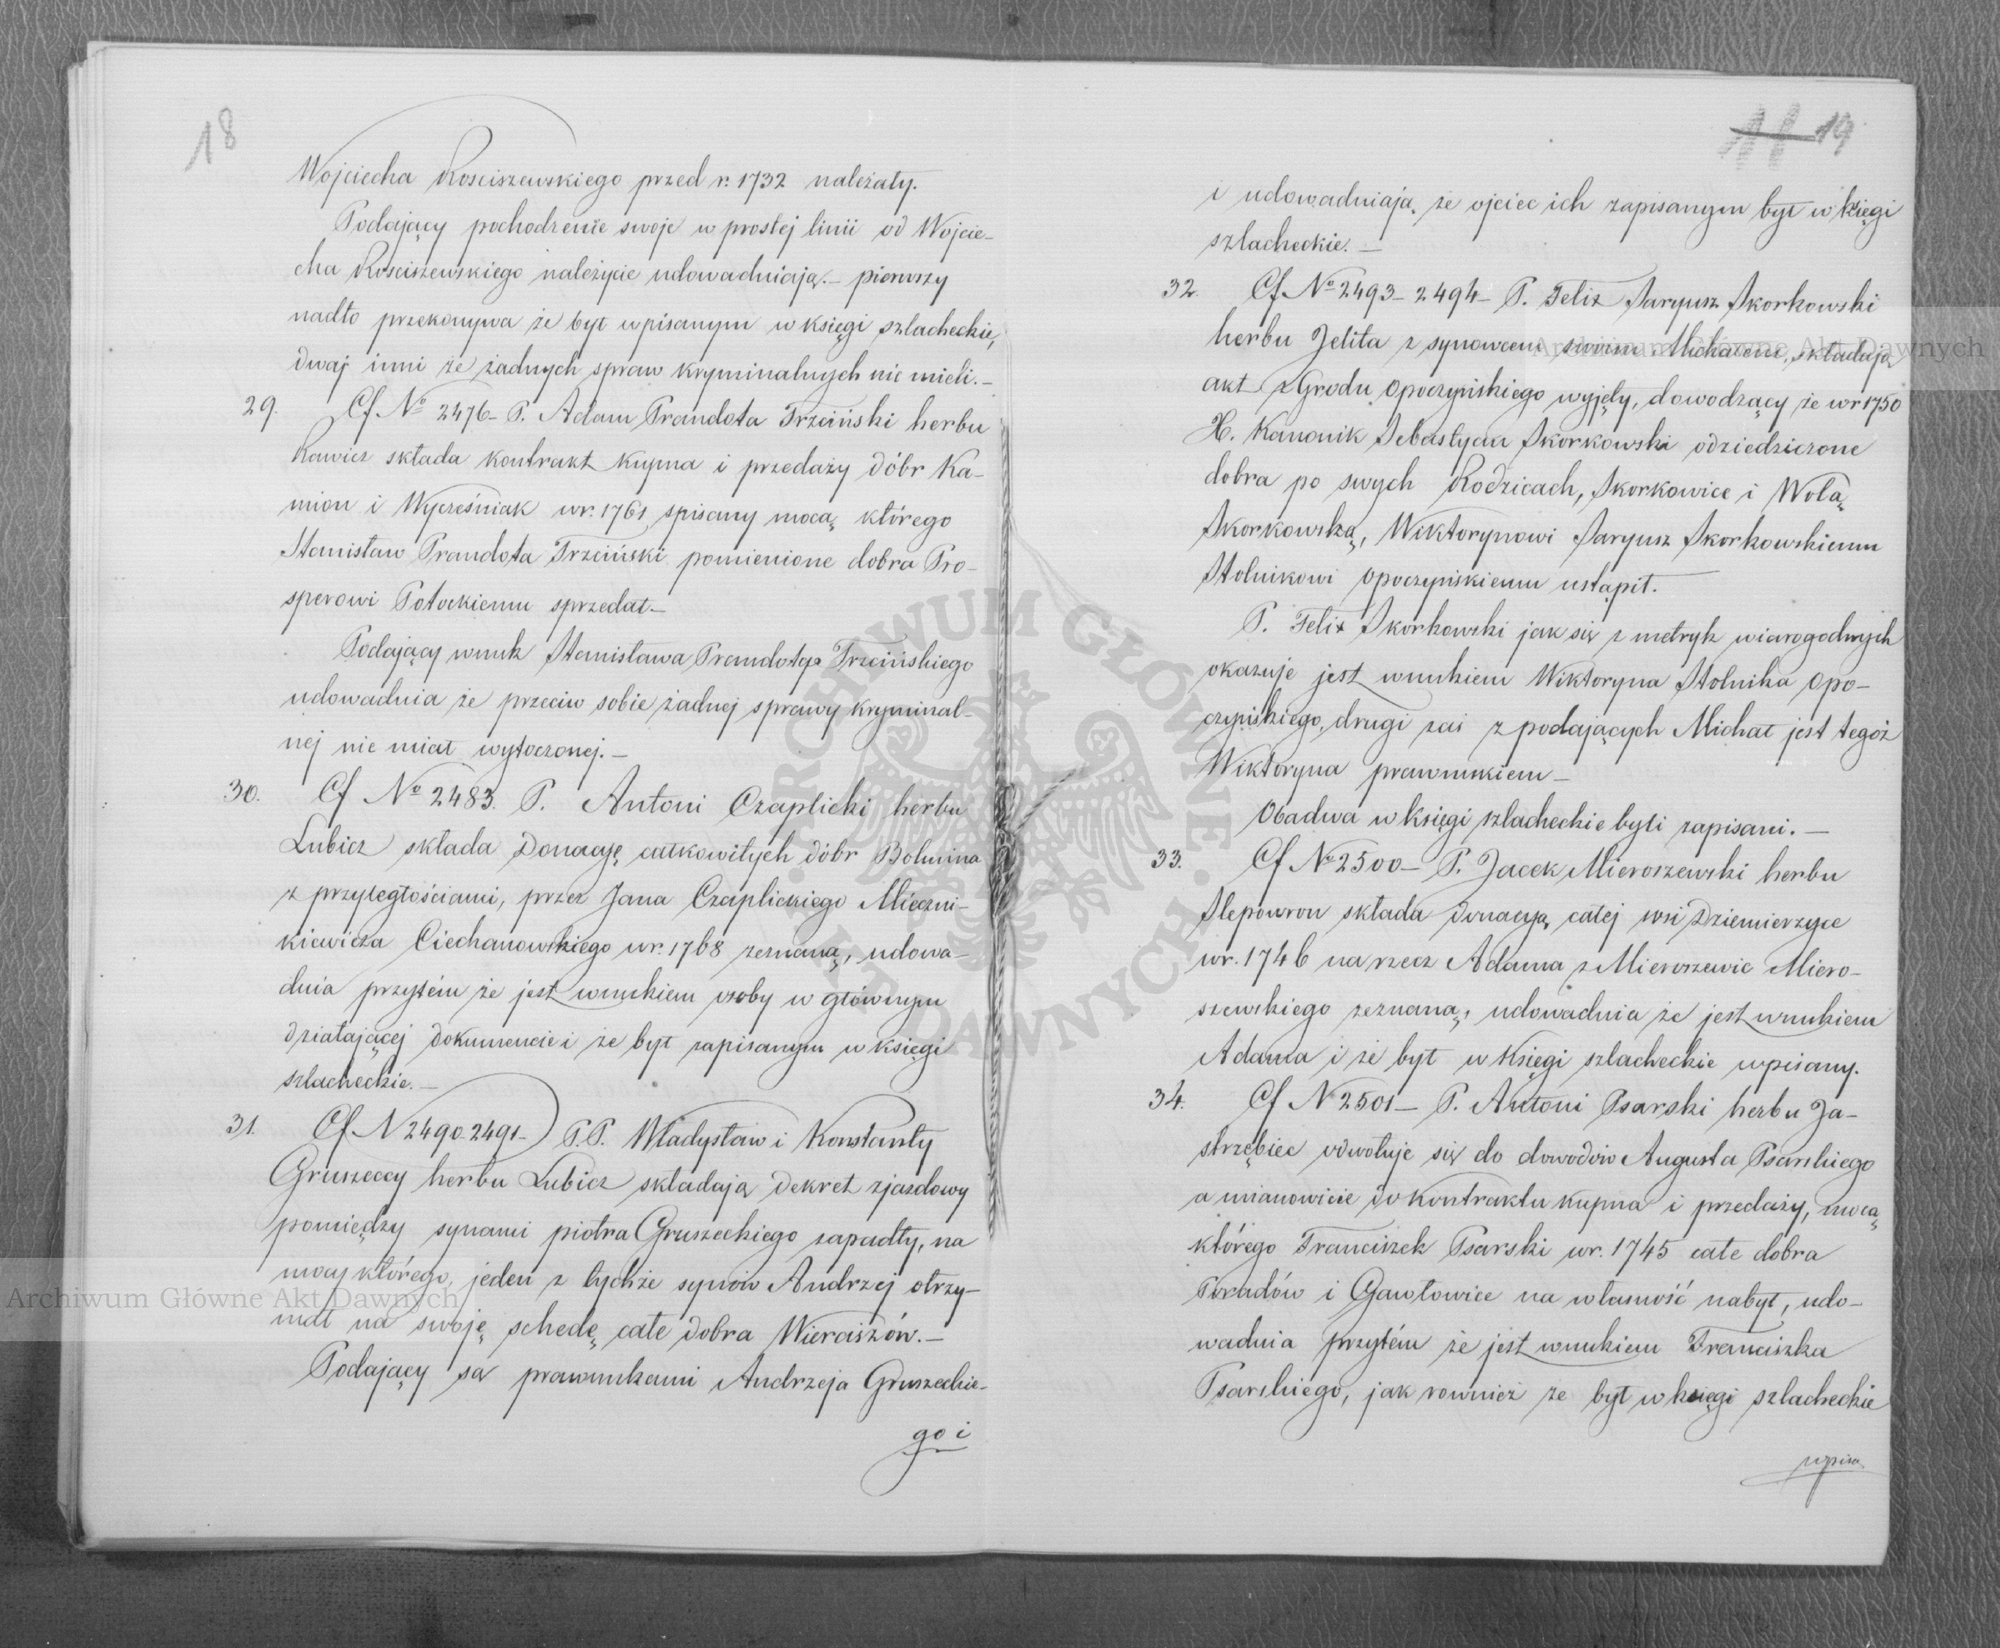 18
Wojciecha Rościszewskiego przed r. 1732 należały.
Podający pochodzenie swoje w prostej linii od Wojcie-
cha Rościszewskiego należycie udowadniają.— pierwszy
nadto przekonywa że był wpisanym w księgi szlacheckie,
dwaj inni że żadnych spraw kryminalnych nie mieli.—
29. Cf No 2476— P. Adam Prandota Trzciński herbu
Rawicz składa kontrakt kupna i przedaży dóbr Ka-
mion i Wycześniak w r. 1761 spisany mocą którego
Stanisław Prandota Trzciński pomienione dobra Pro-
sperowi Potockiemu sprzedał—
Podający wnuk Stanisława Prandoty Trzcińskiego
udowadnia że przeciw sobie żadnej sprawy kryminal-
nej nie miał wytoczonej.—
30. Cf No 2483. P. Antoni Czaplicki herbu
Lubicz składa Donację całkowitych dóbr Bolmina
z przyległościami, przez Jana Czaplickiego Mieczni-
kiewicza Ciechanowskiego w r. 1768 zeznaną, udowa-
dnia przytém że jest wnukiem osoby w głównym
działającej dokumencie i że był zapisanym w księgi
szlacheckie.—
31. Cf N 2490. 2491— P.P. Władysław i Konstanty
Gruszeccy herbu Lubicz składają Dekret zjazdowy
pomiędzy synami piotra Gruszeckiego zapadły, na
mocy którego, jeden z tychże synów Andrzej otrzy-
mał na swoję schedę całe dobra Wierciszów.—
Podający są prawnukami Andrzeja Gruszeckie-
go i
11 19
i udowadniają że ojciec ich zapisanym był w księgi
szlacheckie.—
32. Cf No 2493— 2494— P. Felix Jaryusz Skorkowski
herbu Jelita z synowcem swoim Michałem, składają
akt z Grodu opoczyńskiego wyjęty, dowodzący że w r 1750
X. Kanonik Sebastyan Skorkowski odziedziczone
dobra po swych Rodzicach, Skorkowice i Wolą
Skorkowską, Wiktorynowi Jaryusz Skorkowskiemu
Stolnikowi opoczyńskiemu ustąpił.
P. Felix Skorkowski jak się z metryk wiarogodnych
okazuje jest wnukiem Wiktoryna Stolnika opo-
czyńskiego, drugi zaś z podających Michał jest tegoż
Wiktoryna prawnukiem—
Obadwa w księgi szlacheckie byli zapisani.—
33. Cf No 2500— P. Jacek Mieroszewski herbu
Ślepowron składa donacyą całej wsi Dziemierzyce
w r. 1746 na rzecz Adama z Mieroszewic Miero-
szewskiego zeznaną, udowadnia że jest wnukiem
Adama i że był w Księgi szlacheckie wpisany.
34. Cf N 2501— P. Antoni Psarski herbu Ja-
strzębiec odwołuje się do dowodów Augusta Psarskiego
a mianowicie do kontraktu kupna i przedaży, mocą
którego Franciszek Psarski w r. 1745 całe dobra
Poradów i Gawłowice na własność nabył, udo-
wadnia przytém że jest wnukiem Franciszka
Psarskiego, jak rownież że był w księgi szlacheckie
wpisa
ARCHIWUM GŁÓWNE AKT DAWNYCH
Archiwum Główne Akt Dawnych
Archiwum Główne Akt Dawnych